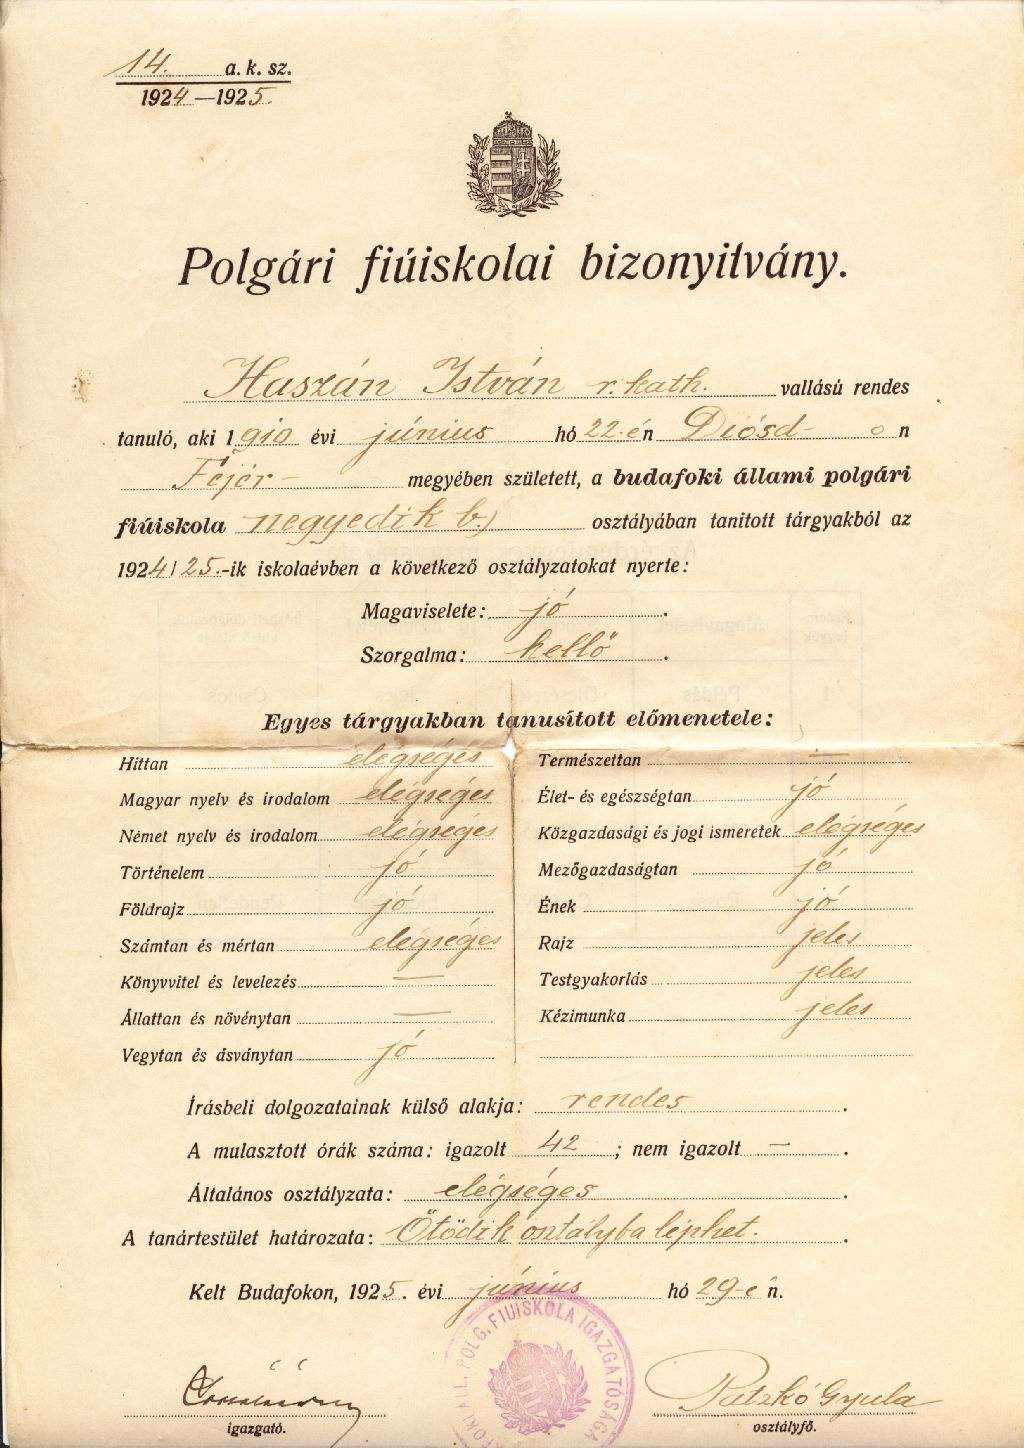 14. a. k. sz.
1924—1925.
Polgári fiúiskolai bizonyitvány.
Haszán István r. kath. vallású rendes
tanuló, aki 1910 évi június hó 22-én Diósd-on
Fejér- megyében született, a budafoki állami polgári
fiúiskola negyedik b.) osztályában tanitott tárgyakból az
1924/25.-ik iskolaévben a következő osztályzatokat nyerte:
Magaviselete: jó.
Szorgalma: kellő.
Egyes tárgyakban tanusított előmenetele:
Hittan elégséges
Magyar nyelv és irodalom elégséges
Német nyelv és irodalom elégséges
Történelem jó
Földrajz jó
Számtan és mértan elégséges
Könyvvitel és levelezés —
Állattan és növénytan —
Vegytan és ásványtan jó
Természettan —
Élet- és egészségtan jó
Közgazdasági és jogi ismeretek elégséges
Mezőgazdaságtan jó
Ének jó
Rajz jeles
Testgyakorlás jeles
Kézimunka jeles
Írásbeli dolgozatainak külső alakja: rendes.
A mulasztott órák száma: igazolt 42; nem igazolt —.
Általános osztályzata: elégséges.
A tanártestület határozata: Ötödik osztályba léphet.
Kelt Budafokon, 1925. évi június hó 29-én.
FOKI ÁLL. POLG. FIUISKOLA IGAZGATÓSÁGA
Patzkó Gyula
igazgató.
osztályfő.